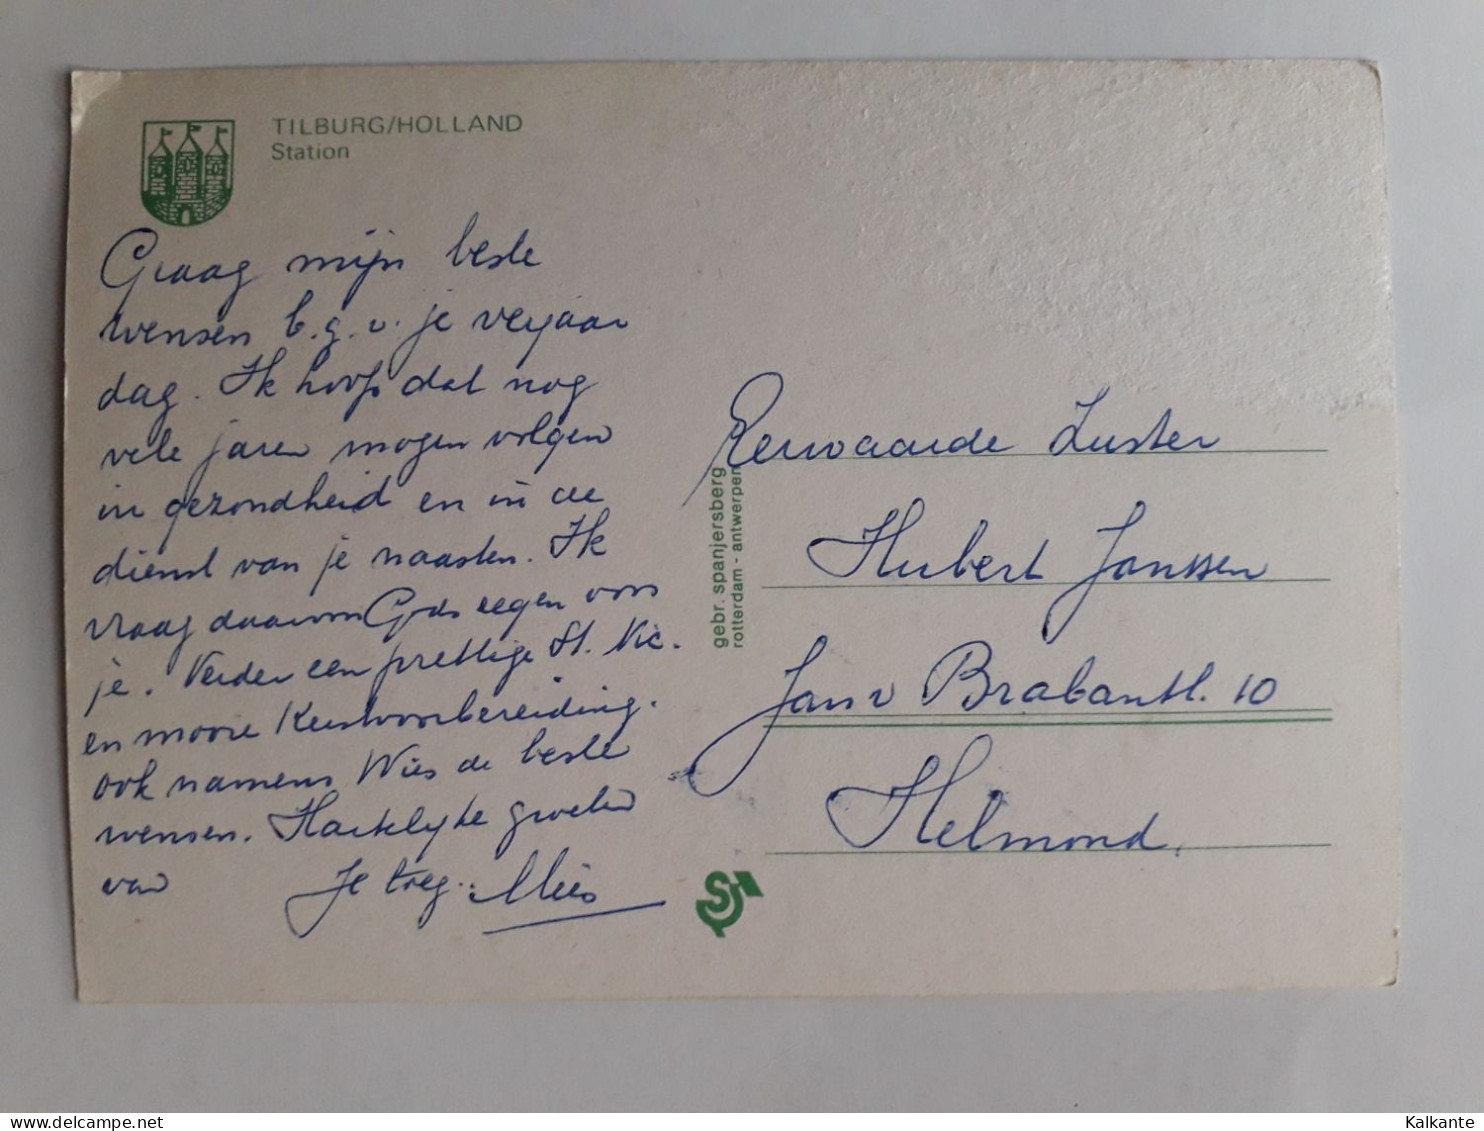 TILBURG/HOLLAND
Station
Graag mijn beste
wensen b.g.v. je verjaar
dag. Ik hoop dat nog
vele jaren mogen volgen
in gezondheid en in de
dienst van je naasten. Ik
vraag daarom Gods zegen voor
je. Verder een prettige St. Nic.
en mooie Kerstvoorbereiding.
ook namens Wies de beste
wensen. Hartelijke groeten
van Je toeg. Mies
gebr. spanjersberg
rotterdam - antwerpen
Eerwaarde Zuster
Hubert Janssen
Jan v Brabantl. 10
Helmond.
Kalkante